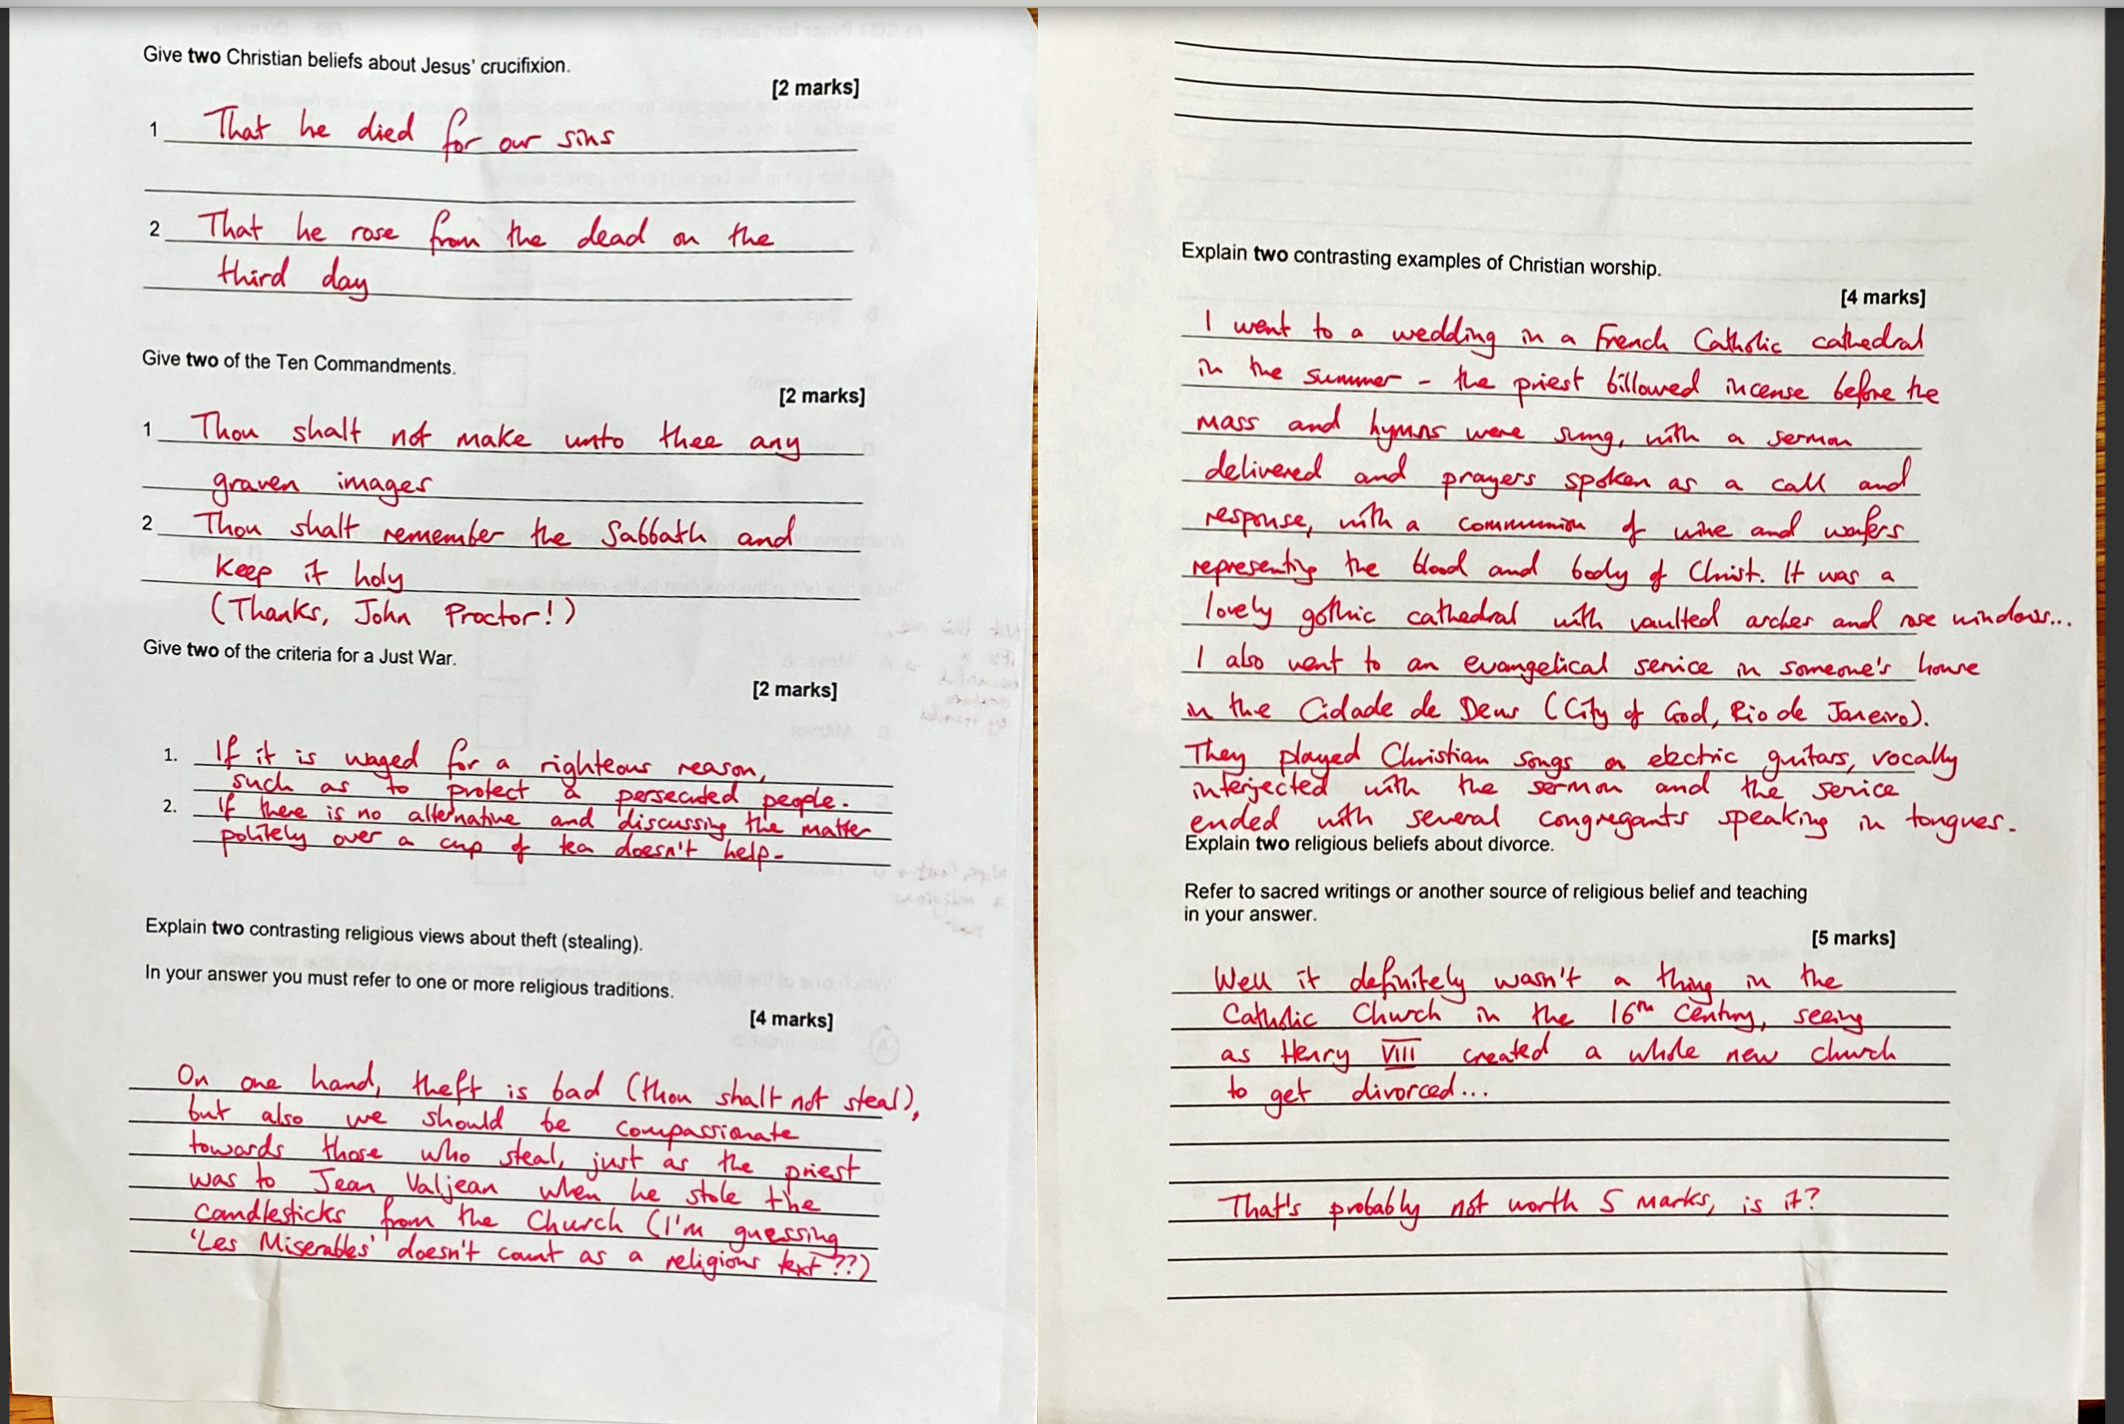 Give two Christian beliefs about Jesus' crucifixion.
[2 marks]
1 That he died for our sins
2 That he rose from the dead on the
third day
Give two of the Ten Commandments.
[2 marks]
1 Thou shalt not make unto thee any
graven images
2 Thou shalt remember the Sabbath and
keep it holy
(Thanks, John Proctor!)
Give two of the criteria for a Just War.
[2 marks]
1. If it is waged for a righteous reason,
such as to protect a persecuted people.
2. If there is no alternative and discussing the matter
politely over a cup of tea doesn't help.
Explain two contrasting religious views about theft (stealing).
In your answer you must refer to one or more religious traditions.
[4 marks]
On one hand, theft is bad (thou shalt not steal),
but also we should be compassionate
towards those who steal, just as the priest
was to Jean Valjean when he stole the
candlesticks from the Church (I'm guessing
'Les Miserables' doesn't count as a religious text??)
Explain two contrasting examples of Christian worship.
[4 marks]
I went to a wedding in a French Catholic cathedral
in the summer - the priest billowed incense before the
mass and hymns were sung, with a sermon
delivered and prayers spoken as a call and
response, with a communion of wine and wafers
representing the blood and body of Christ. It was a
lovely gothic cathedral with vaulted arches and rose windows...
I also went to an evangelical service in someone's house
in the Cidade de Deus (City of God, Rio de Janeiro).
They played Christian songs on electric guitars, vocally
interjected with the sermon and the service
ended with several congregants speaking in tongues.
Explain two religious beliefs about divorce.
Refer to sacred writings or another source of religious belief and teaching
in your answer.
[5 marks]
Well it definitely wasn't a thing in the
Catholic Church in the 16th Century, seeing
as Henry VIII created a whole new church
to get divorced...
That's probably not worth 5 marks, is it?